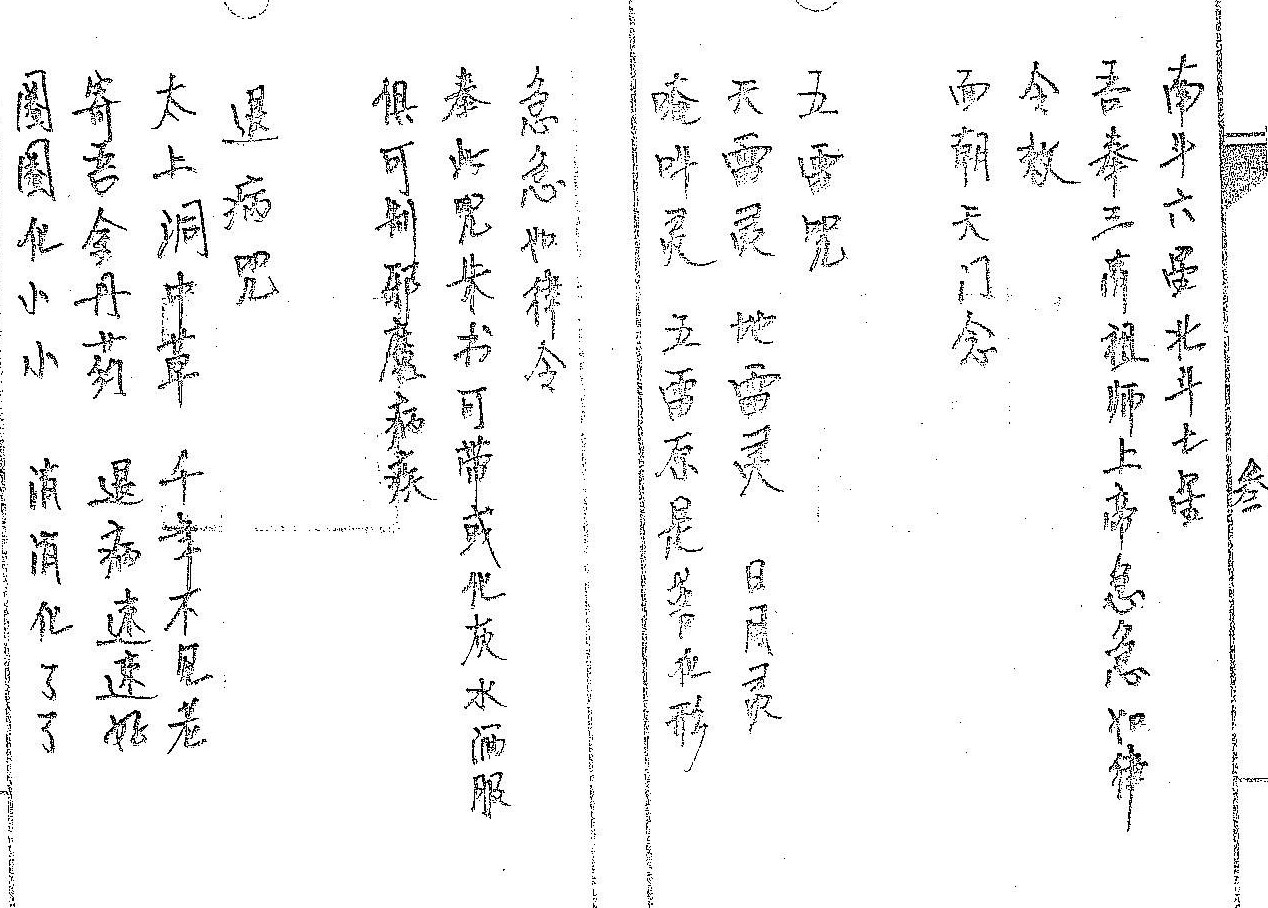 叁
南斗六星北斗七星
吾奉三清祖师上帝急急如律
令敕
面朝天门念
五雷咒
天雷灵 地雷灵 日月灵
唵吽灵 五雷原是化形
急急如律令
奉此咒朱书可带或化灰水洒服
俱可制邪魔病疾
退病咒
太上洞中草 千年不见老
寄吾金丹药 退病速速好
圈圈化小小 消消化了了